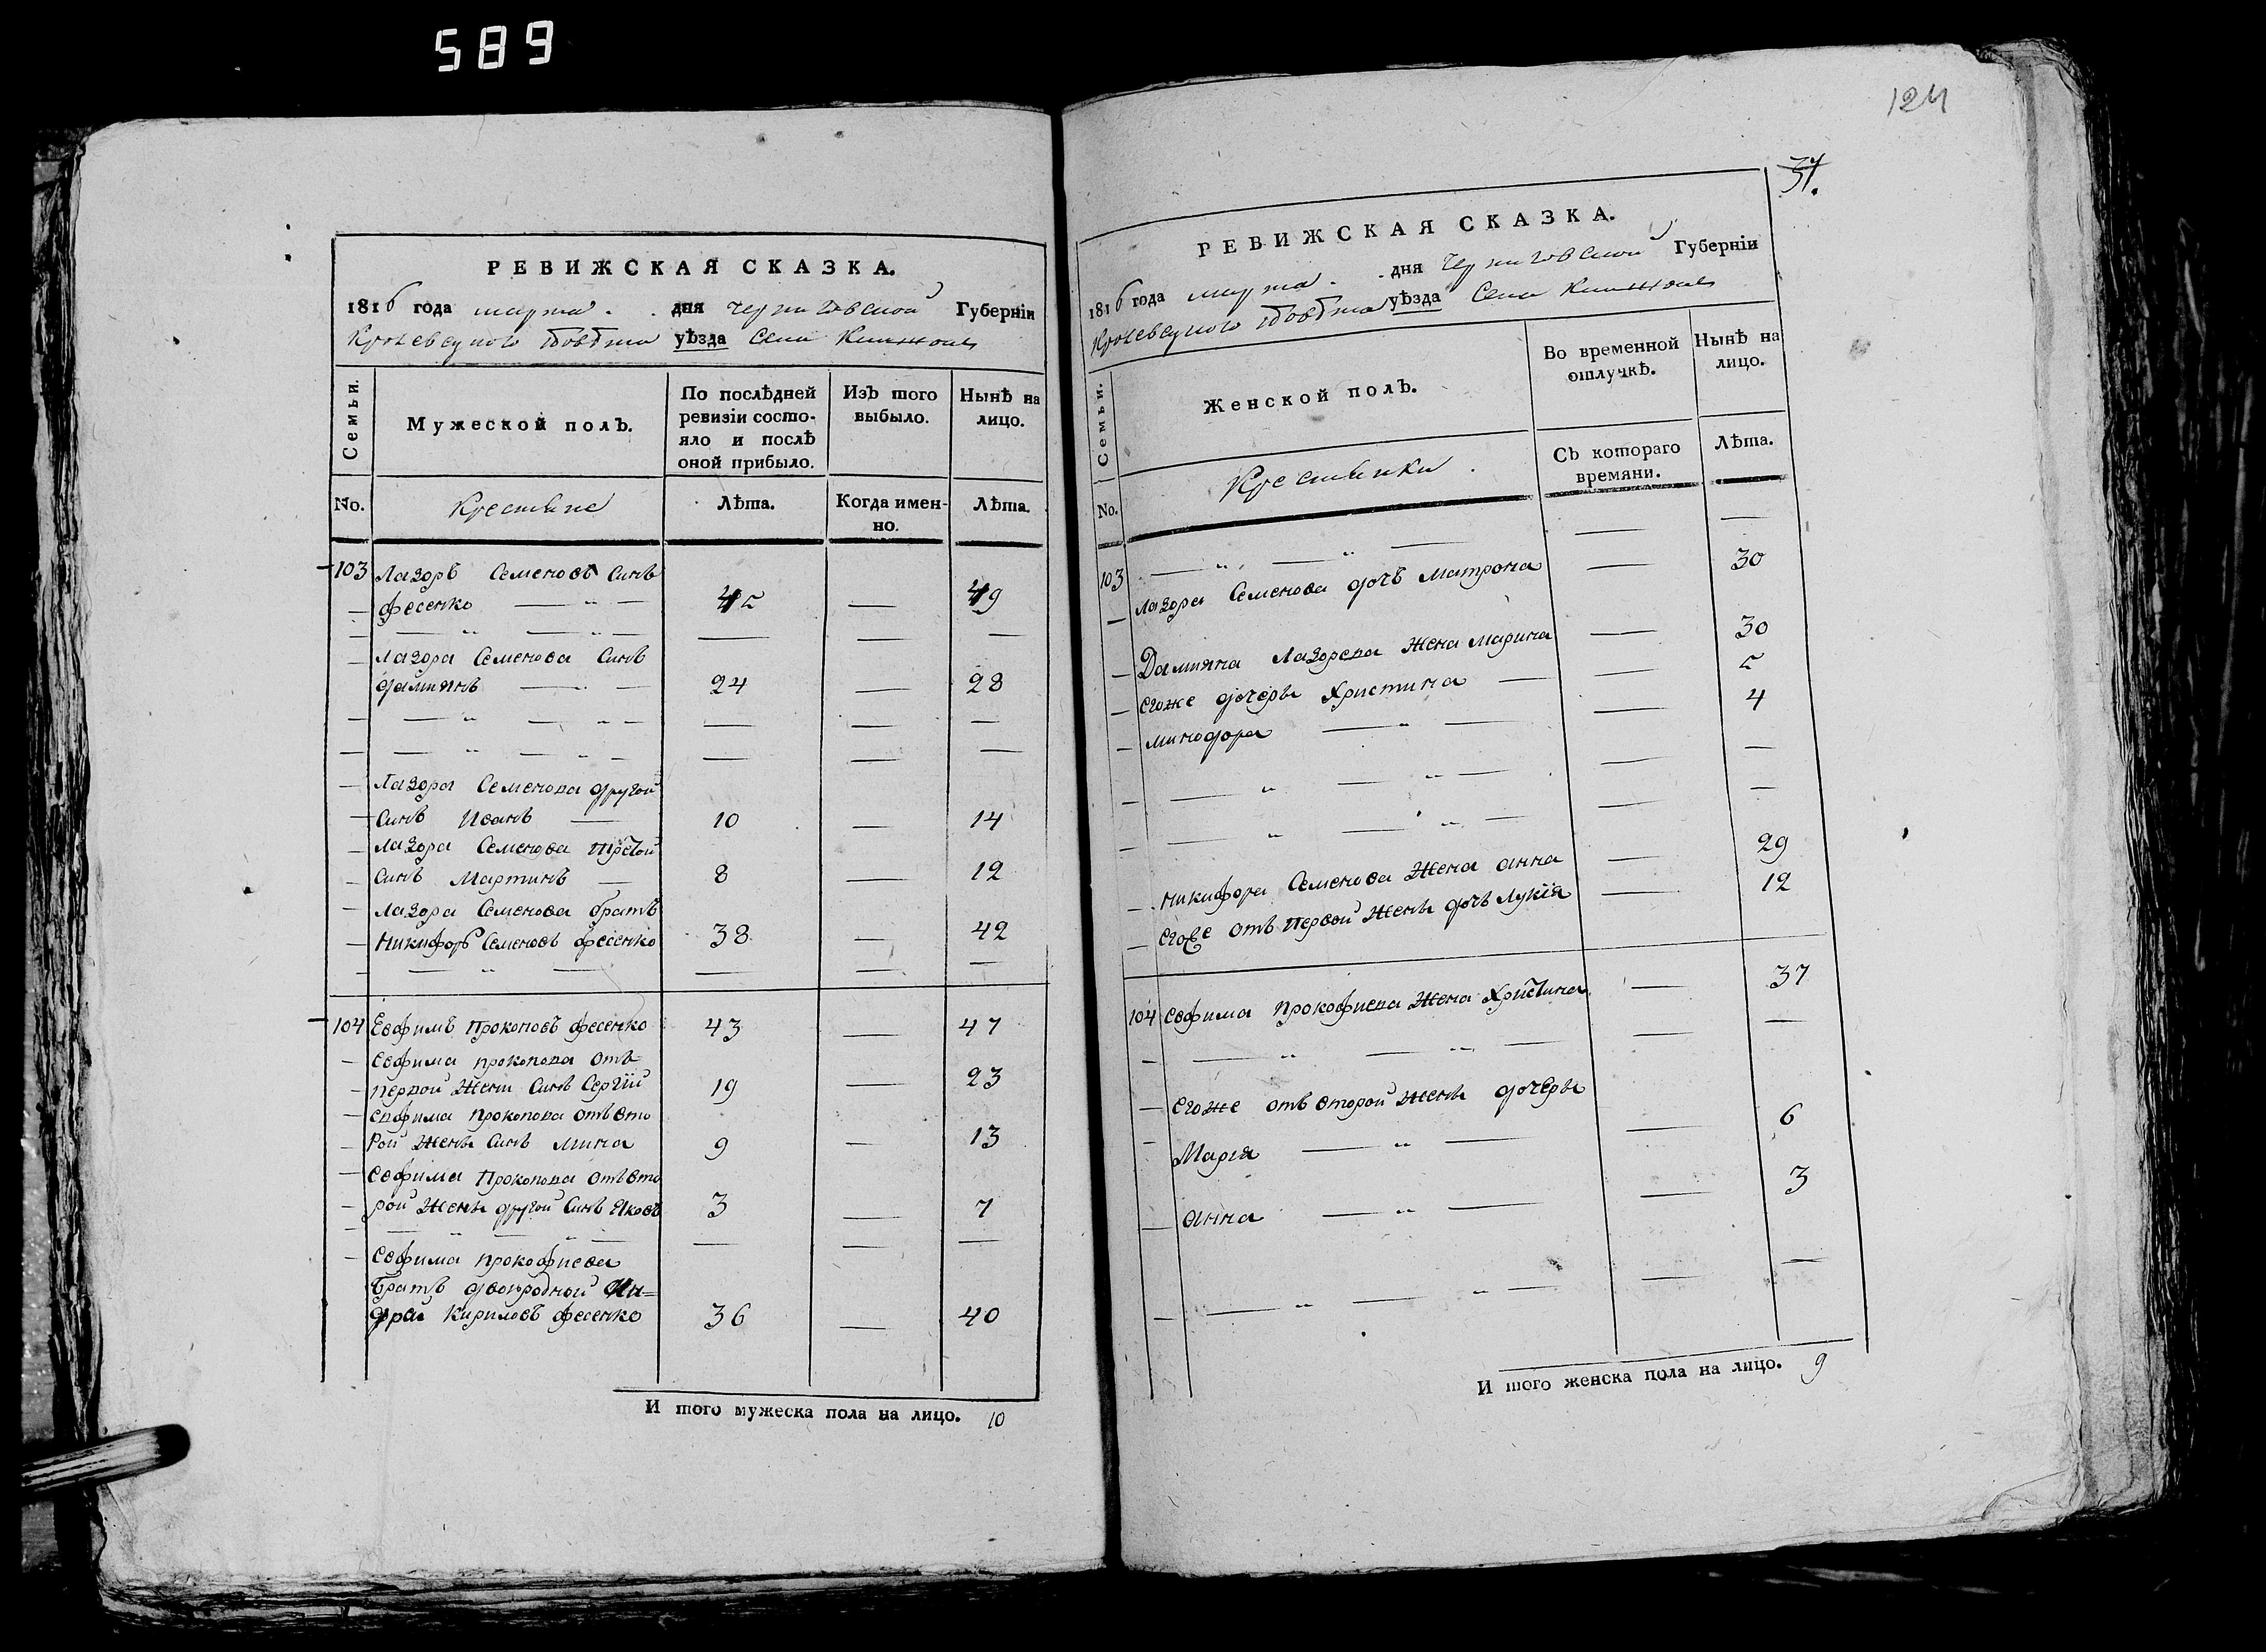 589
РЕВИЖСКАЯ СКАЗКА.
1816 года марта . . дня Черниговской Губерніи
Кролевецкого повѣта уѣзда Села
Семьи.
Мужеской полъ.
По послѣдней ревизіи состояло и послѣ оной прибыло.
Изъ того выбыло.
Нынѣ на лицо.
No. Крестьяне Лѣта. Когда именно. Лѣта.
103 Лазоръ Семеновъ Синъ
— Фесенко — „ — 45 — 49
— — „ — „ — — — —
— Лазора Семенова Синъ
Даміянъ — — 24 — 28
— — „ — „ — — — —
— — „ — „ — — — —
— Лазора Семенова другой
— Синъ Иванъ — 10 — 14
— Лазора Семенова третой
— Синъ Мартинъ — 8 — 12
— Лазора Семенова братъ
— Никифоръ Семеновъ Фесенко 38 — 42
— — „ — — — —
104 Евфимъ Прокоповъ Фесенко 43 — 47
— Евфима Прокопова отъ
— первой жени Синъ Сергій 19 — 23
— Евфима Прокопова отъ вто
— рой жены Синъ Мина 9 — 13
— Евфима Прокопова отъ вто
— рой жены другой Синъ Яковъ 3 — 7
— — „ — „ — — — —
— Евфима Прокофиева
братъ двоюродной Ан=
дрей Кириловъ Фесенко 36 — 40
И того мужеска пола на лицо. 10
124
37.
РЕВИЖСКАЯ СКАЗКА.
1816 года марта . . дня Черниговской Губерніи
Кролевецкого повѣта уѣзда Села
Семьи.
Женской полъ.
Во временной отлучкѣ.
Нынѣ на лицо.
No. Крестьянки . Съ котораго времяни. Лѣта.
103 — „ — „ — — —
— Лазора Семенова дочь Матрона — 30
— Даміяна Лазорева жена Марина — 30
— Егоже дочеры Христина — — 5
— Минодора — „ — — 4
— — „ — „ — — —
— — „ — „ — — —
— Никифора Семенова жена Анна — 29
— Егоже отъ первой жены дочь Лукія — 12
104 Евфима Прокофиева жена Христина — 37
— — „ — „ — — —
— Егоже отъ второй жены дочеры
— Марія — „ — — 6
— Анна — „ — — 3
— — „ — „ — — —
И того женска пола на лицо. 9